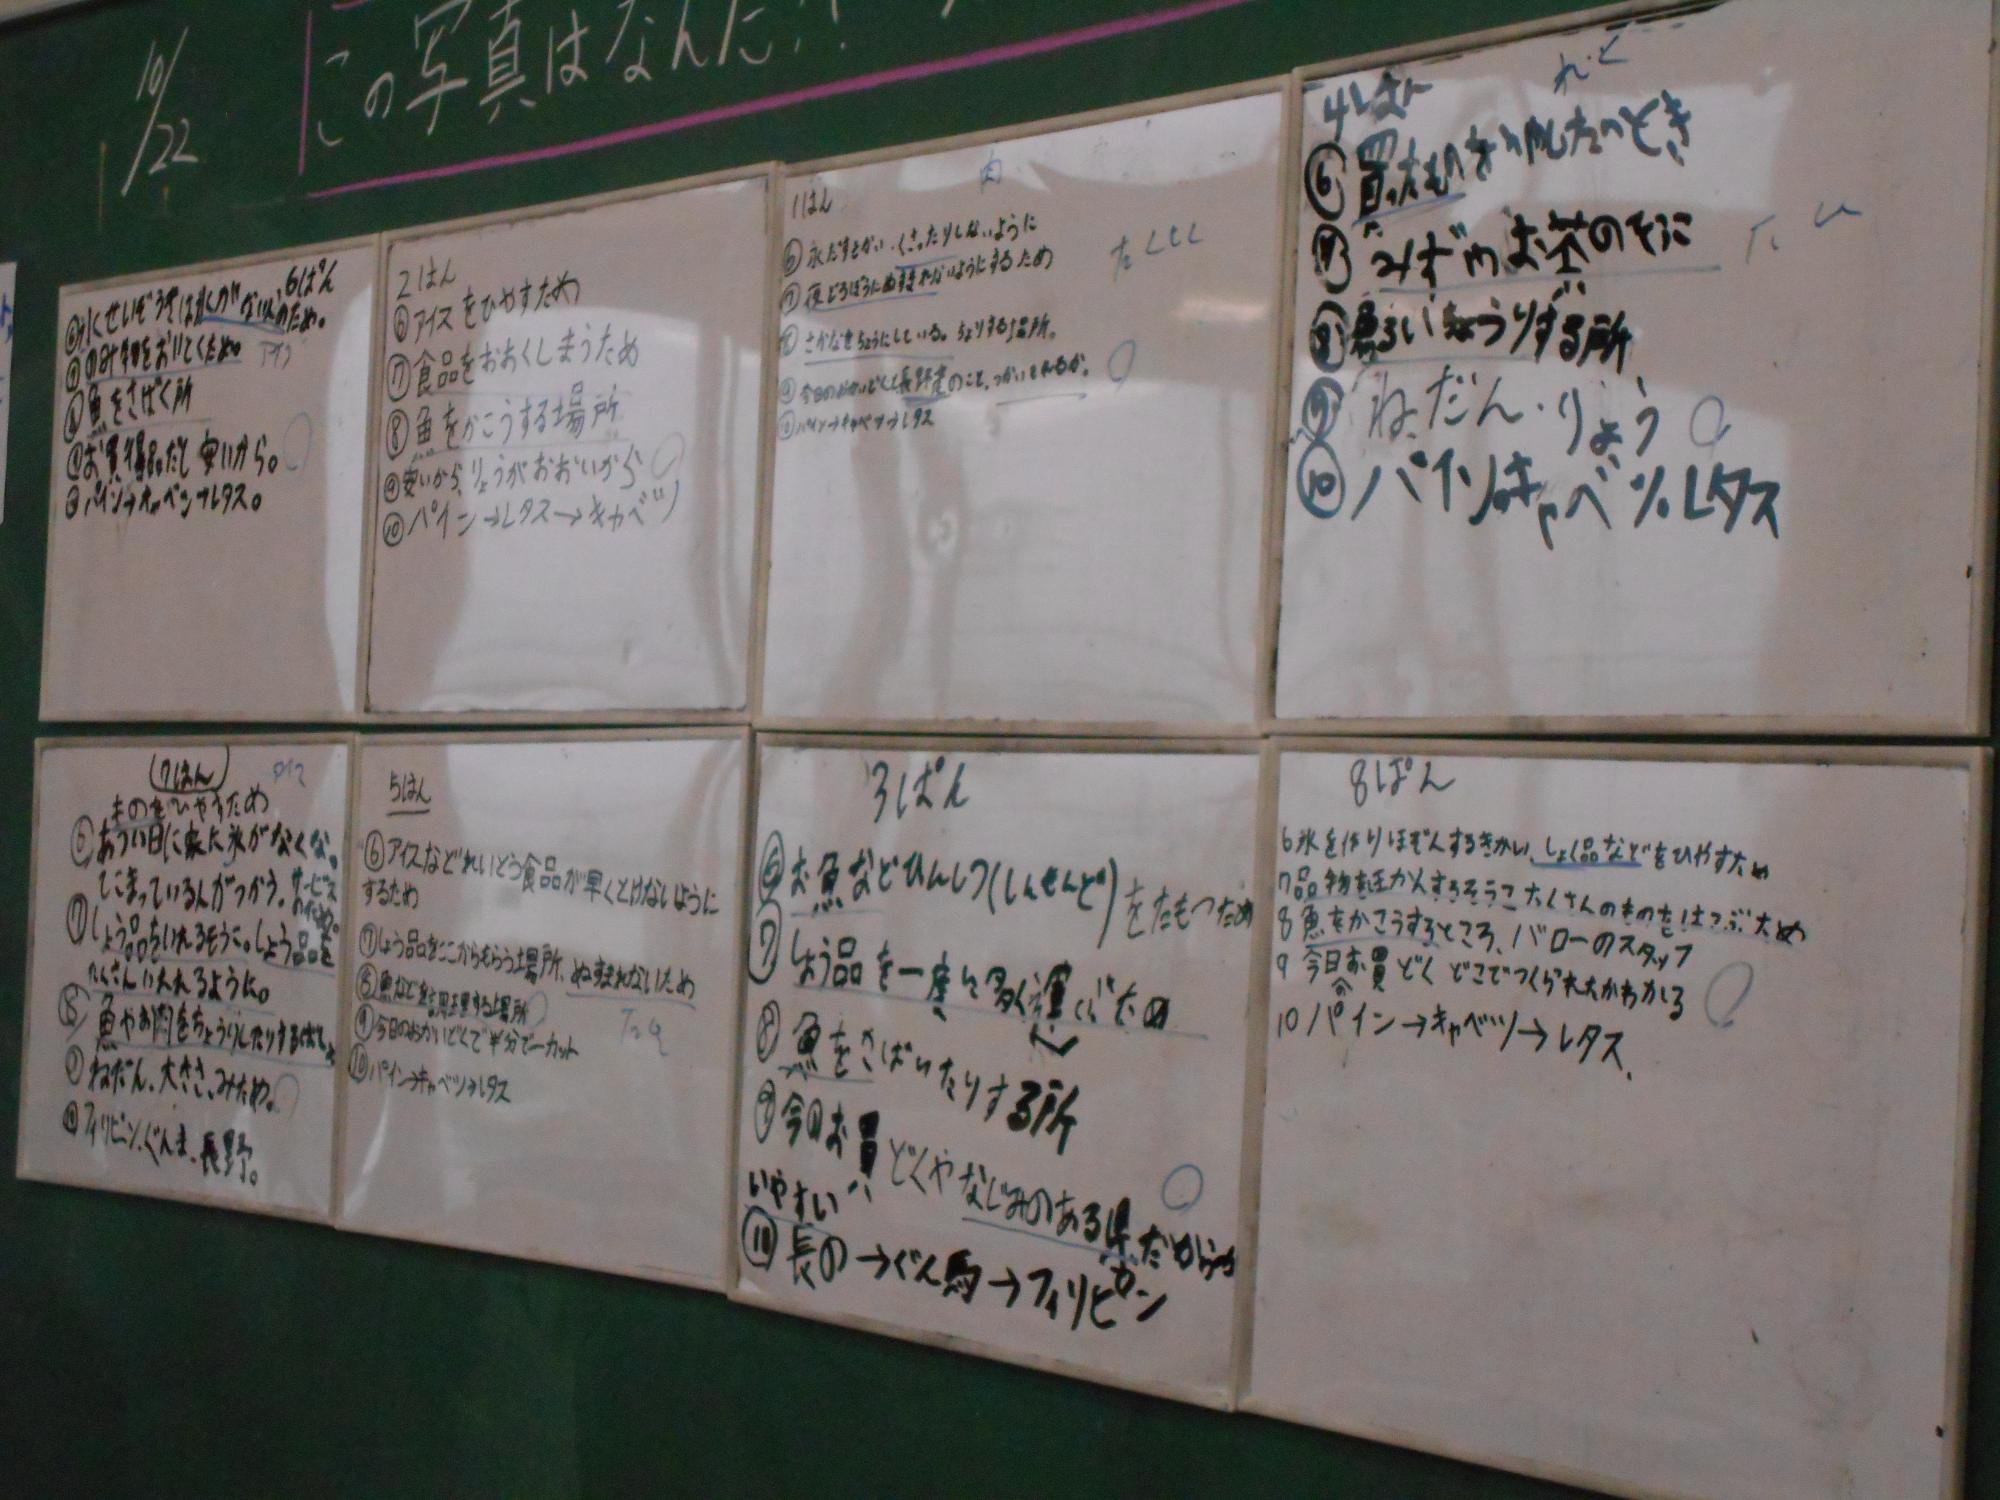 10/22
この写真はなんだ!?
6ぱん
のみ物をおいてくため。
アイス
魚をさばく所
お買得品だと安いから。
パイン→キャベツ→レタス。
2はん
⑥アイスをひやすため
⑦食品をおおくしまうため
⑧魚をかこうする場所
⑨安いから、りょうがおおいから
⑩パイン→レタス→キャベツ
1はん
肉
⑥氷だすきかい、くさったりしないように
⑦夜どろぼうにぬすまれないようにするため
⑧さかなをちょうりしている。ちょりする場所。
⑨今日のおかいどくと長野産のこと、
⑩パイン→キャベツ→レタス
4はん
⑥買ったものをひやしたいとき
⑦みずやお茶のそうこ
⑧魚るいちょうりする所
⑨ねだん・りょう
⑩パイン。キャベツ。レタス
7はん
アイス
ものをひやすため
⑥あつい日に来た氷がなくな。
てこまっている人がつかう。サービスのため。
⑦しょう品をいれるそうこ。しょう品を
たくさんいれるように。
⑧魚やお肉をちょうりしたりするばしょ
⑨ねだん、大きさ、みため。
⑩フィリピン、ぐんま、長野。
5はん
⑥アイスなどれいとう食品が早くとけないように
するため
⑦しょう品をここからもらう場所、ぬすまれないため
⑧魚などを調理する場所
⑨今日のおかいどくで半分で一カット
⑩パイン→キャベツ→レタス
3ぱん
⑥お魚などひんしつ(しんせんど)をたもつため
⑦しょう品を一度に多く運ぶため
⑧魚をさばいたりする所
⑨今日お買どくやなじみのある県だからか
いやすい
⑩長の→ぐん馬→フィリピン
8ぱん
6氷を作りほぞんするきかい、しょく品などをひやすため
7品物をほかんするそうこたくさんのものをはこぶため
8魚をかこうするところ、バローのスタッフ
9今日のお買どくどこでつくられたかわかる
10パイン→キャベツ→レタス、